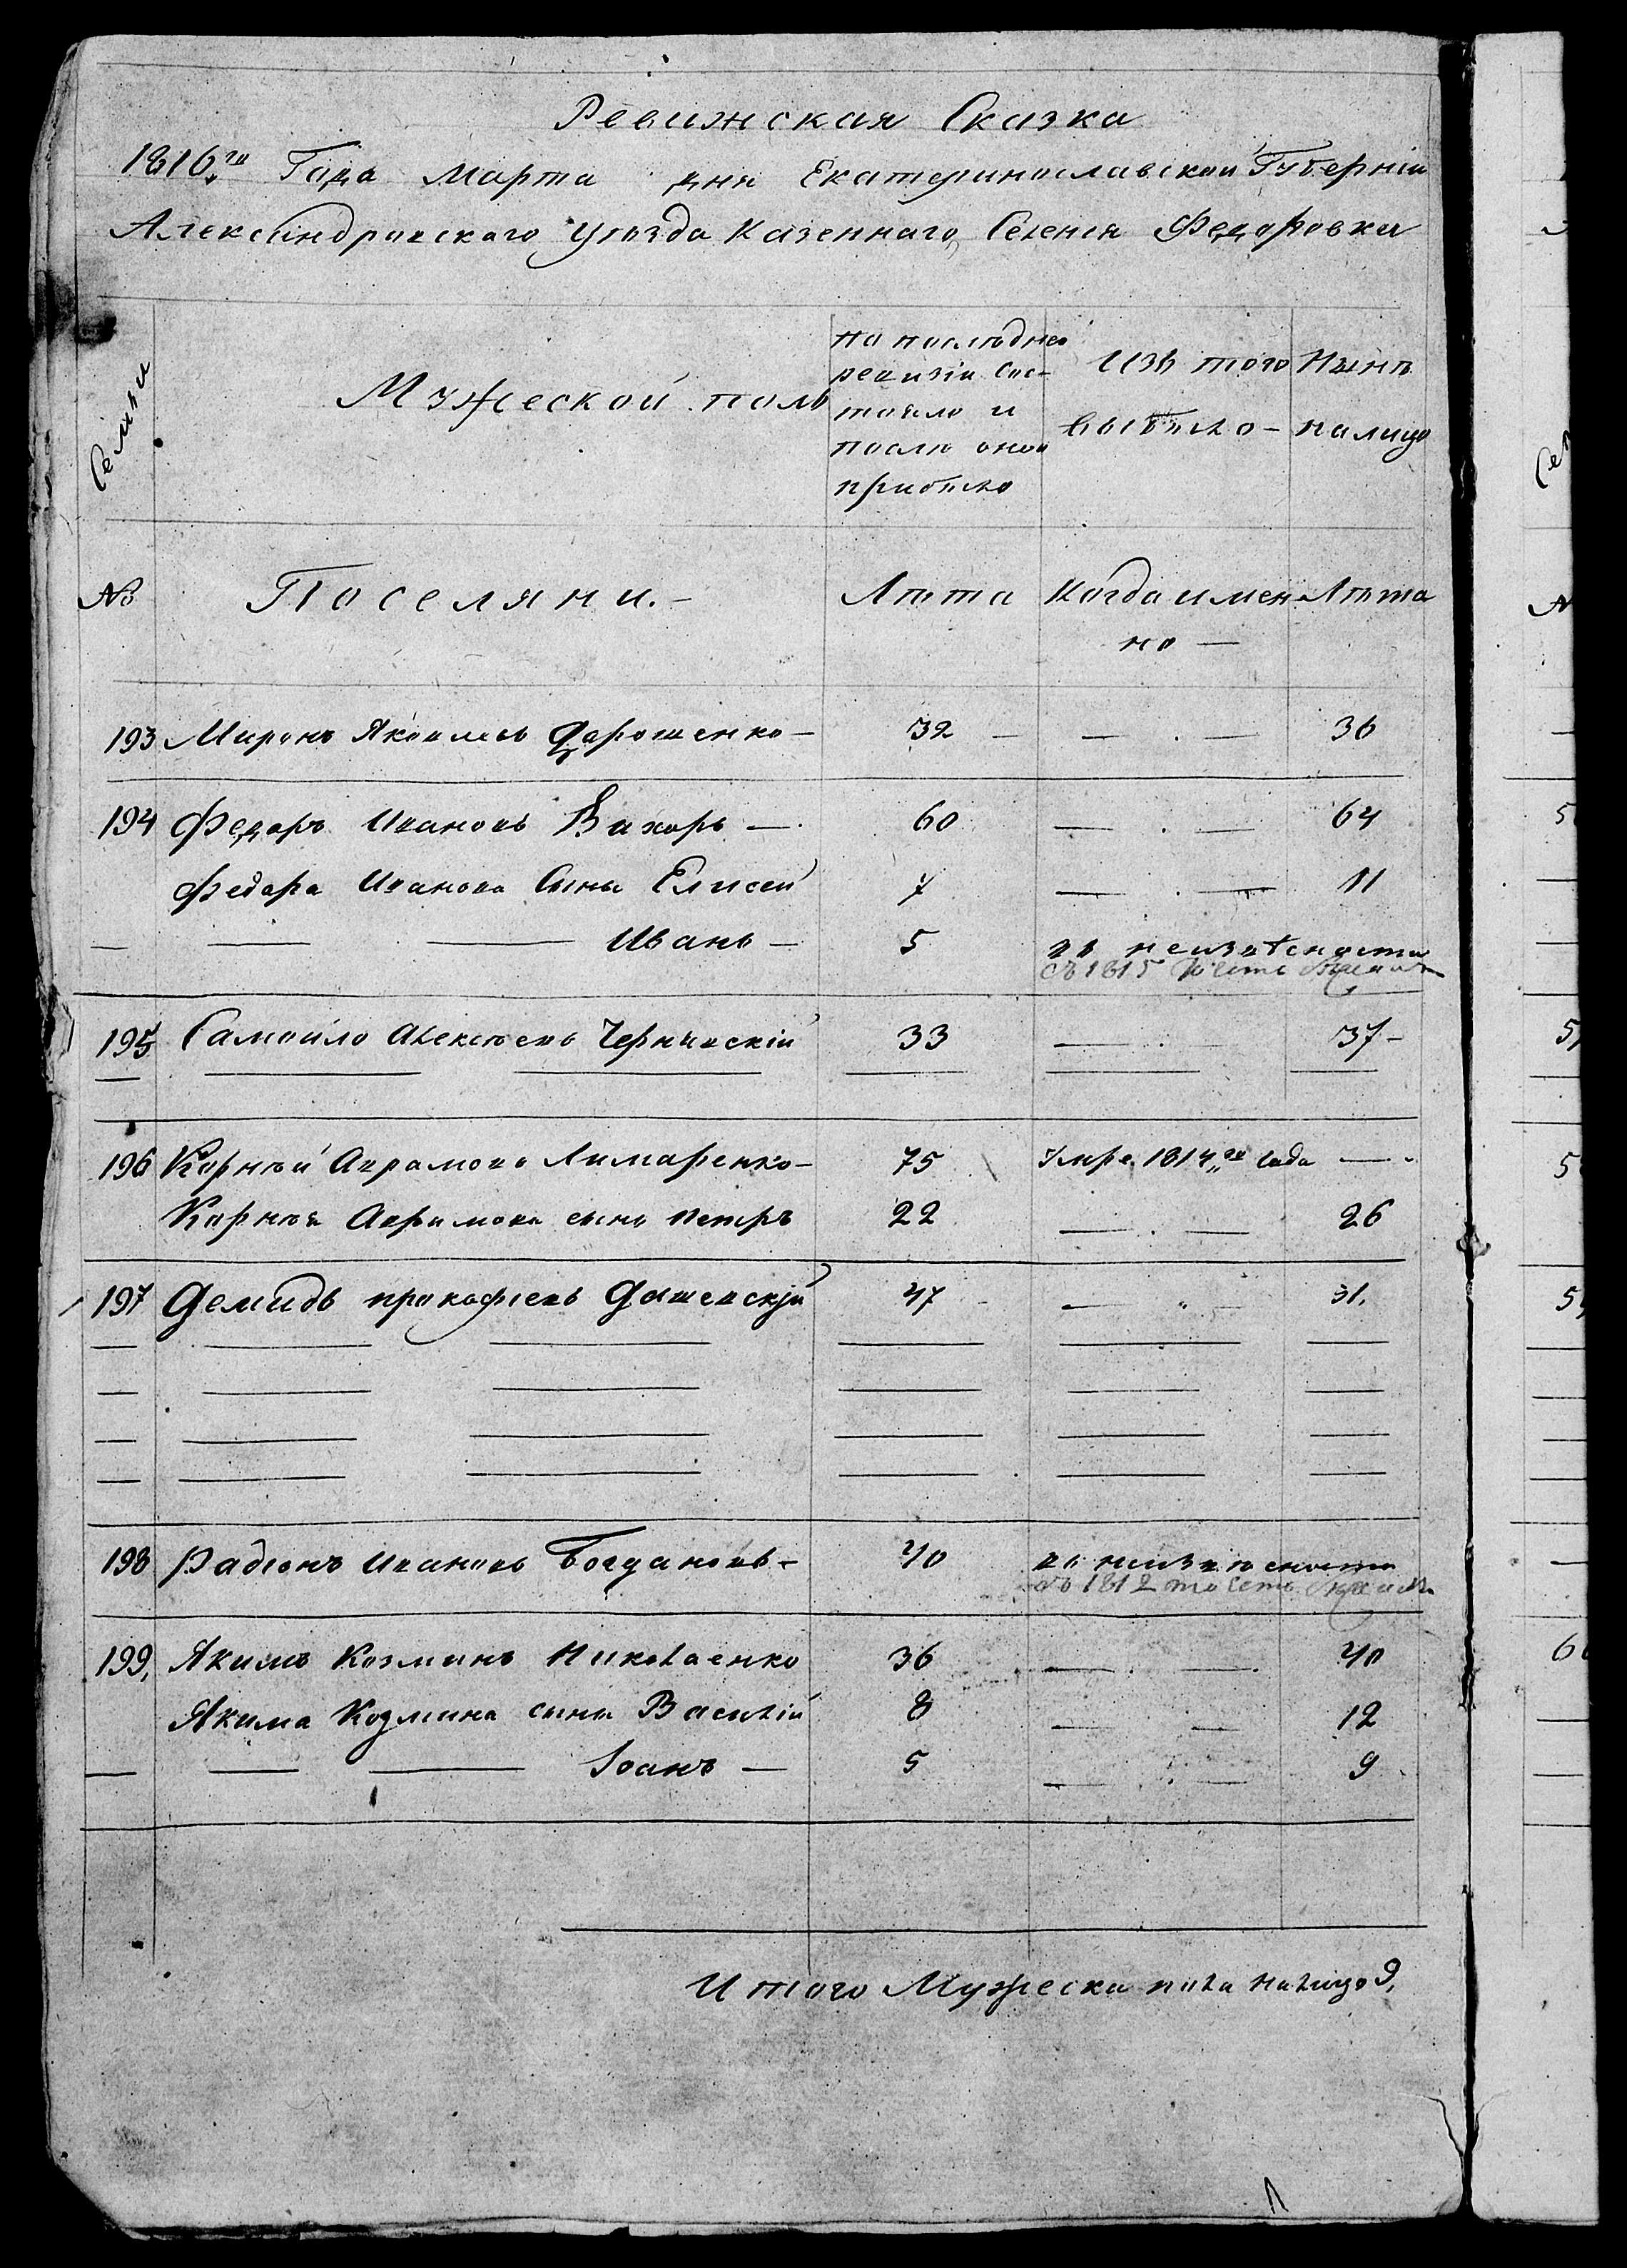 Ревижская Сказка
1816го Года Марта дня Екатеринославской Губерніи
Александровскаго уѣзда Казеннаго Селенія Федоровки
Семьи
Мужеской полъ
по послѣдней
ревизіи сос-
тояло и
послѣ оной
прибыло
Изъ того
выбыло-
Нынѣ
налицо
№ Поселяни.- Лѣта Когда имен- Лѣта
но —
193 Миронъ Яковлевъ Дорошенко — 32 — — . — 36
194 Федоръ Ивановъ Вихорь —. 60 — . — 64
Федора Иванова Сыны Елисей 7 — . — 11
— — — Иванъ — 5 въ неизвѣсности
съ 1815
195 Самойло Алексѣевъ Чернявскій 33 — . — 37-
196 Корнѣй Аврамовъ Лимаренко- 75 Умре 1814го года —.
Корнѣя Аврамова сынъ Петръ 22 — . — 26
197 Демидъ прокофіевъ Дашевскій 47 — " — 51.
198 Радіонъ Ивановъ Богдановъ- 40 въ неизвѣсности
съ 1812
199, Якимъ Козминъ Николаенко 36 — . —. 40
Якима Козмина сыны Василій 8 — — 12
— — — Іоанъ — 5 — . — 9
Итого Мужеска пола налицо 9,